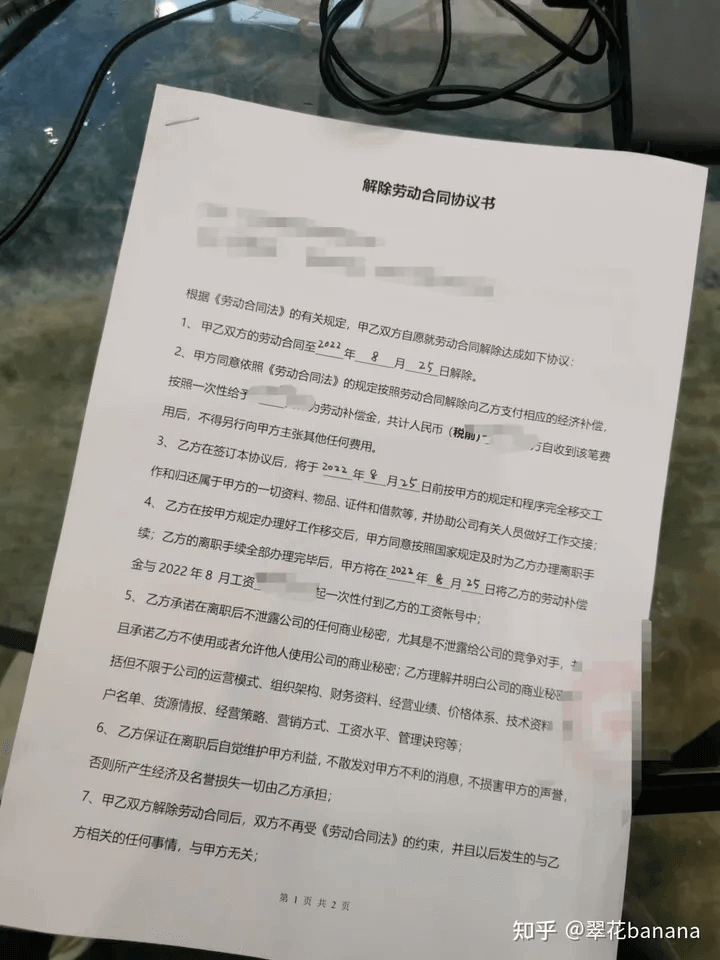 解除劳动合同协议书
根据《劳动合同法》的有关规定，甲乙双方自愿就劳动合同解除达成如下协议：
1、 甲乙双方的劳动合同至2022年8月25日解除。
2、 甲方同意依照《劳动合同法》的规定按照劳动合同解除向乙方支付相应的经济补偿，
按照一次性给予 为劳动补偿金，共计人民币（税前） 方自收到该笔费
用后，不得另行向甲方主张其他任何费用。
3、 乙方在签订本协议后，将于2022年8月25日前按甲方的规定和程序完全移交工
作和归还属于甲方的一切资料、物品、证件和借款等，并协助公司有关人员做好工作交接；
4、 乙方在按甲方规定办理好工作移交后，甲方同意按照国家规定及时为乙方办理离职手
续；乙方的离职手续全部办理完毕后，甲方将在2022年8月25日将乙方的劳动补偿
金与 2022 年 8 月工资 起一次性付到乙方的工资帐号中；
5、 乙方承诺在离职后不泄露公司的任何商业秘密，尤其是不泄露给公司的竞争对手，
且承诺乙方不使用或者允许他人使用公司的商业秘密；乙方理解并明白公司的商业秘密
括但不限于公司的运营模式、组织架构、财务资料、经营业绩、价格体系、技术资料
户名单、货源情报、经营策略、营销方式、工资水平、管理诀窍等；
6、 乙方保证在离职后自觉维护甲方利益，不散发对甲方不利的消息，不损害甲方的声誉，
否则所产生经济及名誉损失一切由乙方承担；
7、甲乙双方解除劳动合同后，双方不再受《劳动合同法》的约束，并且以后发生的与乙
方相关的任何事情，与甲方无关；
第 1 页 共 2 页
知乎 @翠花banana